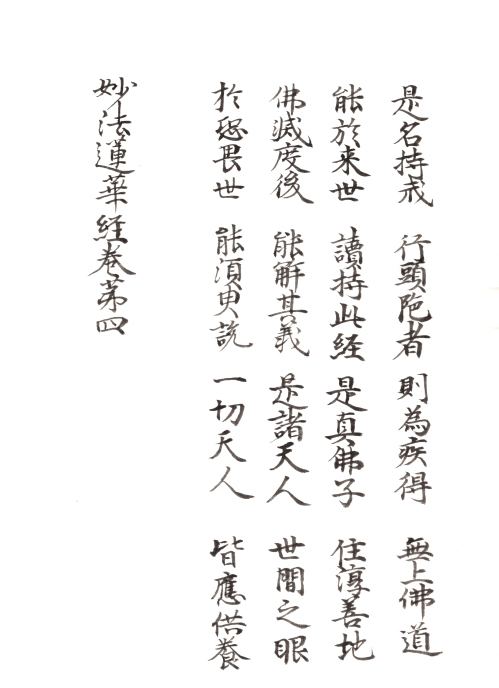 是名持戒 行頭陀者 則為疾得 無上佛道
能於来世 讀持此経 是真佛子 住淳善地
佛滅度後 能解其義 是諸天人 世間之眼
於恐畏世 能須臾說 一切天人 皆應供養
妙法蓮華経卷第四